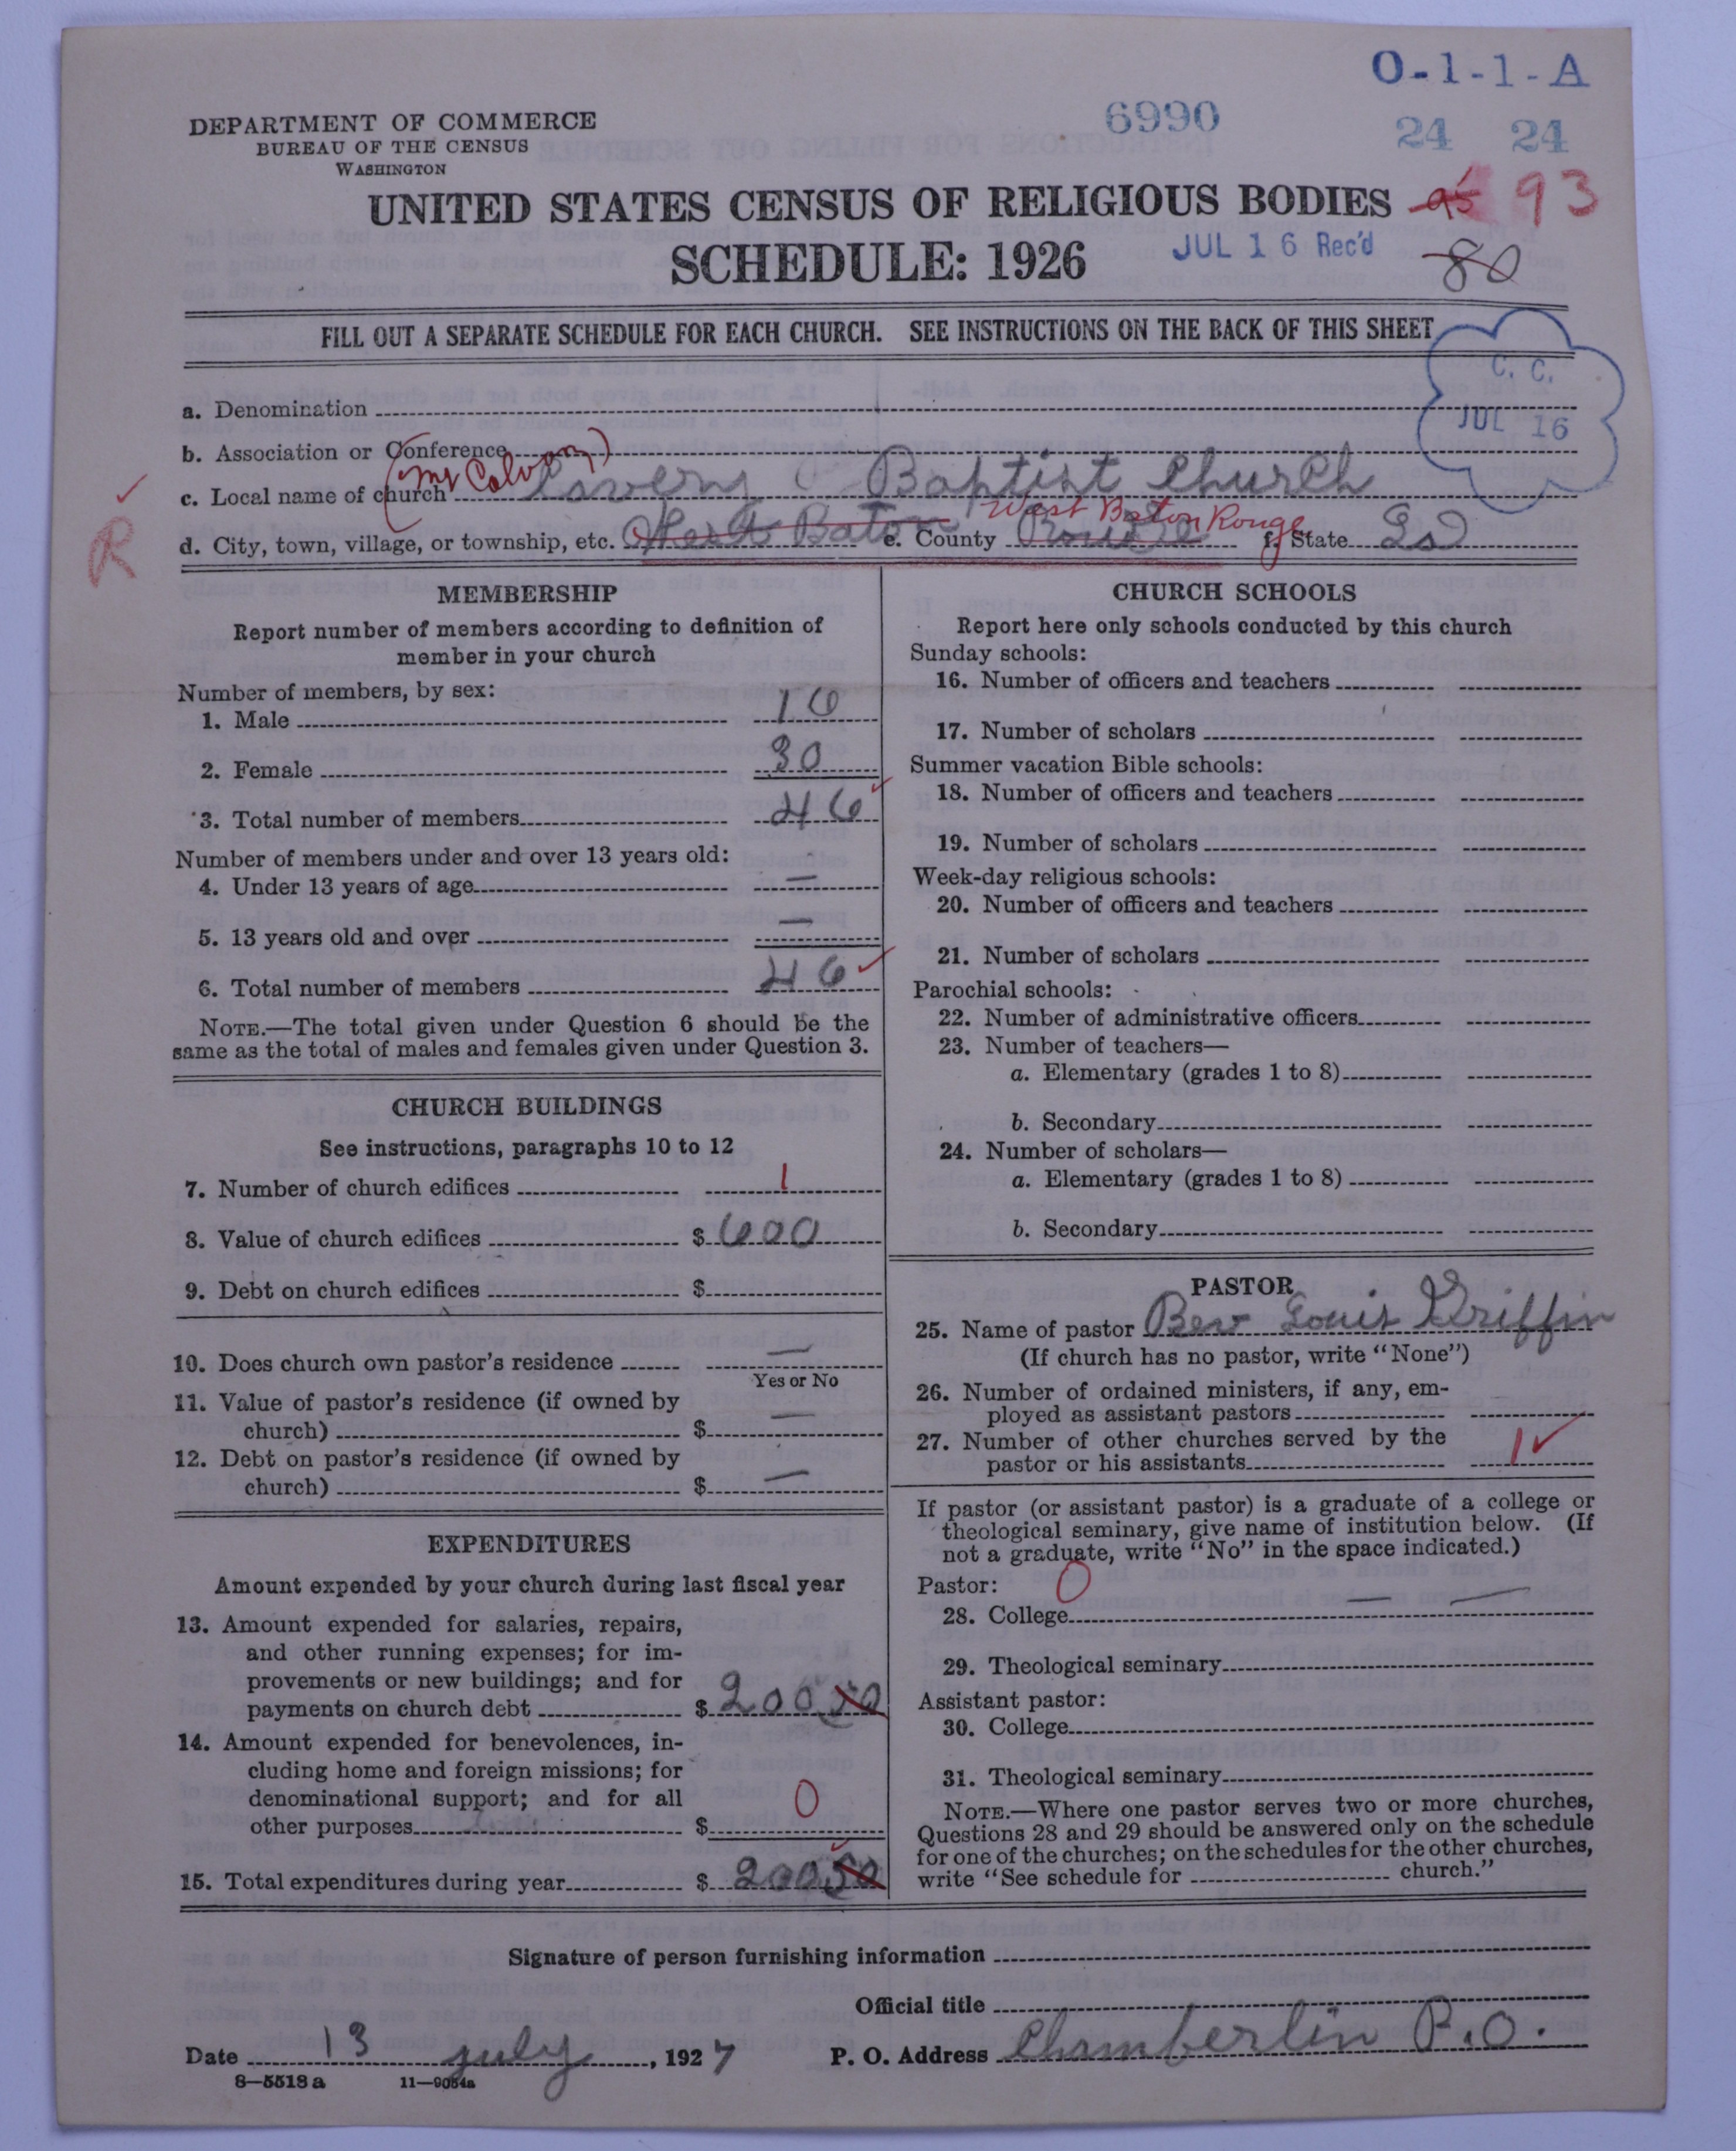 O-1-1-A
6990
24 24
DEPARTMENT OF COMMERCE
BUREAU OF THE CENSUS
WASHINGTON
UNITED STATES CENSUS OF RELIGIOUS BODIES 95 93
SCHEDULE: 1926 JUL 16 Rec'd 80
FILL OUT A SEPARATE SCHEDULE FOR EACH CHURCH. SEE INSTRUCTIONS ON THE BACK OF THIS SHEET
C. C.
JUL 16
a. Denomination
b. Association or Conference
(Mt Calvary)
c. Local name of church Cavery Baptist Church
West Baton Rouge
d. City, town, village, or township, etc. West Baton e. County Rouge f. State La
R
MEMBERSHIP
Report number of members according to definition of
member in your church
Number of members, by sex:
1. Male 16
2. Female 30
3. Total number of members 46
Number of members under and over 13 years old:
4. Under 13 years of age —
5. 13 years old and over —
6. Total number of members 46
NOTE.—The total given under Question 6 should be the
same as the total of males and females given under Question 3.
CHURCH BUILDINGS
See instructions, paragraphs 10 to 12
7. Number of church edifices 1
8. Value of church edifices $ 600
9. Debt on church edifices $
10. Does church own pastor's residence —
Yes or No
11. Value of pastor's residence (if owned by
church) $ —
12. Debt on pastor's residence (if owned by
church) $ —
EXPENDITURES
Amount expended by your church during last fiscal year
13. Amount expended for salaries, repairs,
and other running expenses; for im-
provements or new buildings; and for
payments on church debt $ 200 50
14. Amount expended for benevolences, in-
cluding home and foreign missions; for
denominational support; and for all
other purposes $ 0
15. Total expenditures during year $ 200 50
CHURCH SCHOOLS
Report here only schools conducted by this church
Sunday schools:
16. Number of officers and teachers
17. Number of scholars
Summer vacation Bible schools:
18. Number of officers and teachers
19. Number of scholars
Week-day religious schools:
20. Number of officers and teachers
21. Number of scholars
Parochial schools:
22. Number of administrative officers
23. Number of teachers—
a. Elementary (grades 1 to 8)
b. Secondary
24. Number of scholars—
a. Elementary (grades 1 to 8)
b. Secondary
PASTOR
25. Name of pastor Rev Louis Griffin
(If church has no pastor, write "None")
26. Number of ordained ministers, if any, em-
ployed as assistant pastors
27. Number of other churches served by the
pastor or his assistants 1
If pastor (or assistant pastor) is a graduate of a college or
theological seminary, give name of institution below. (If
not a graduate, write "No" in the space indicated.)
Pastor: 0
28. College — —
29. Theological seminary
Assistant pastor:
30. College
31. Theological seminary
NOTE.—Where one pastor serves two or more churches,
Questions 28 and 29 should be answered only on the schedule
for one of the churches; on the schedules for the other churches,
write "See schedule for church."
Signature of person furnishing information
Official title
Date 13 july, 1927 P. O. Address Chamberlin P.O.
8—5518a 11—9054a